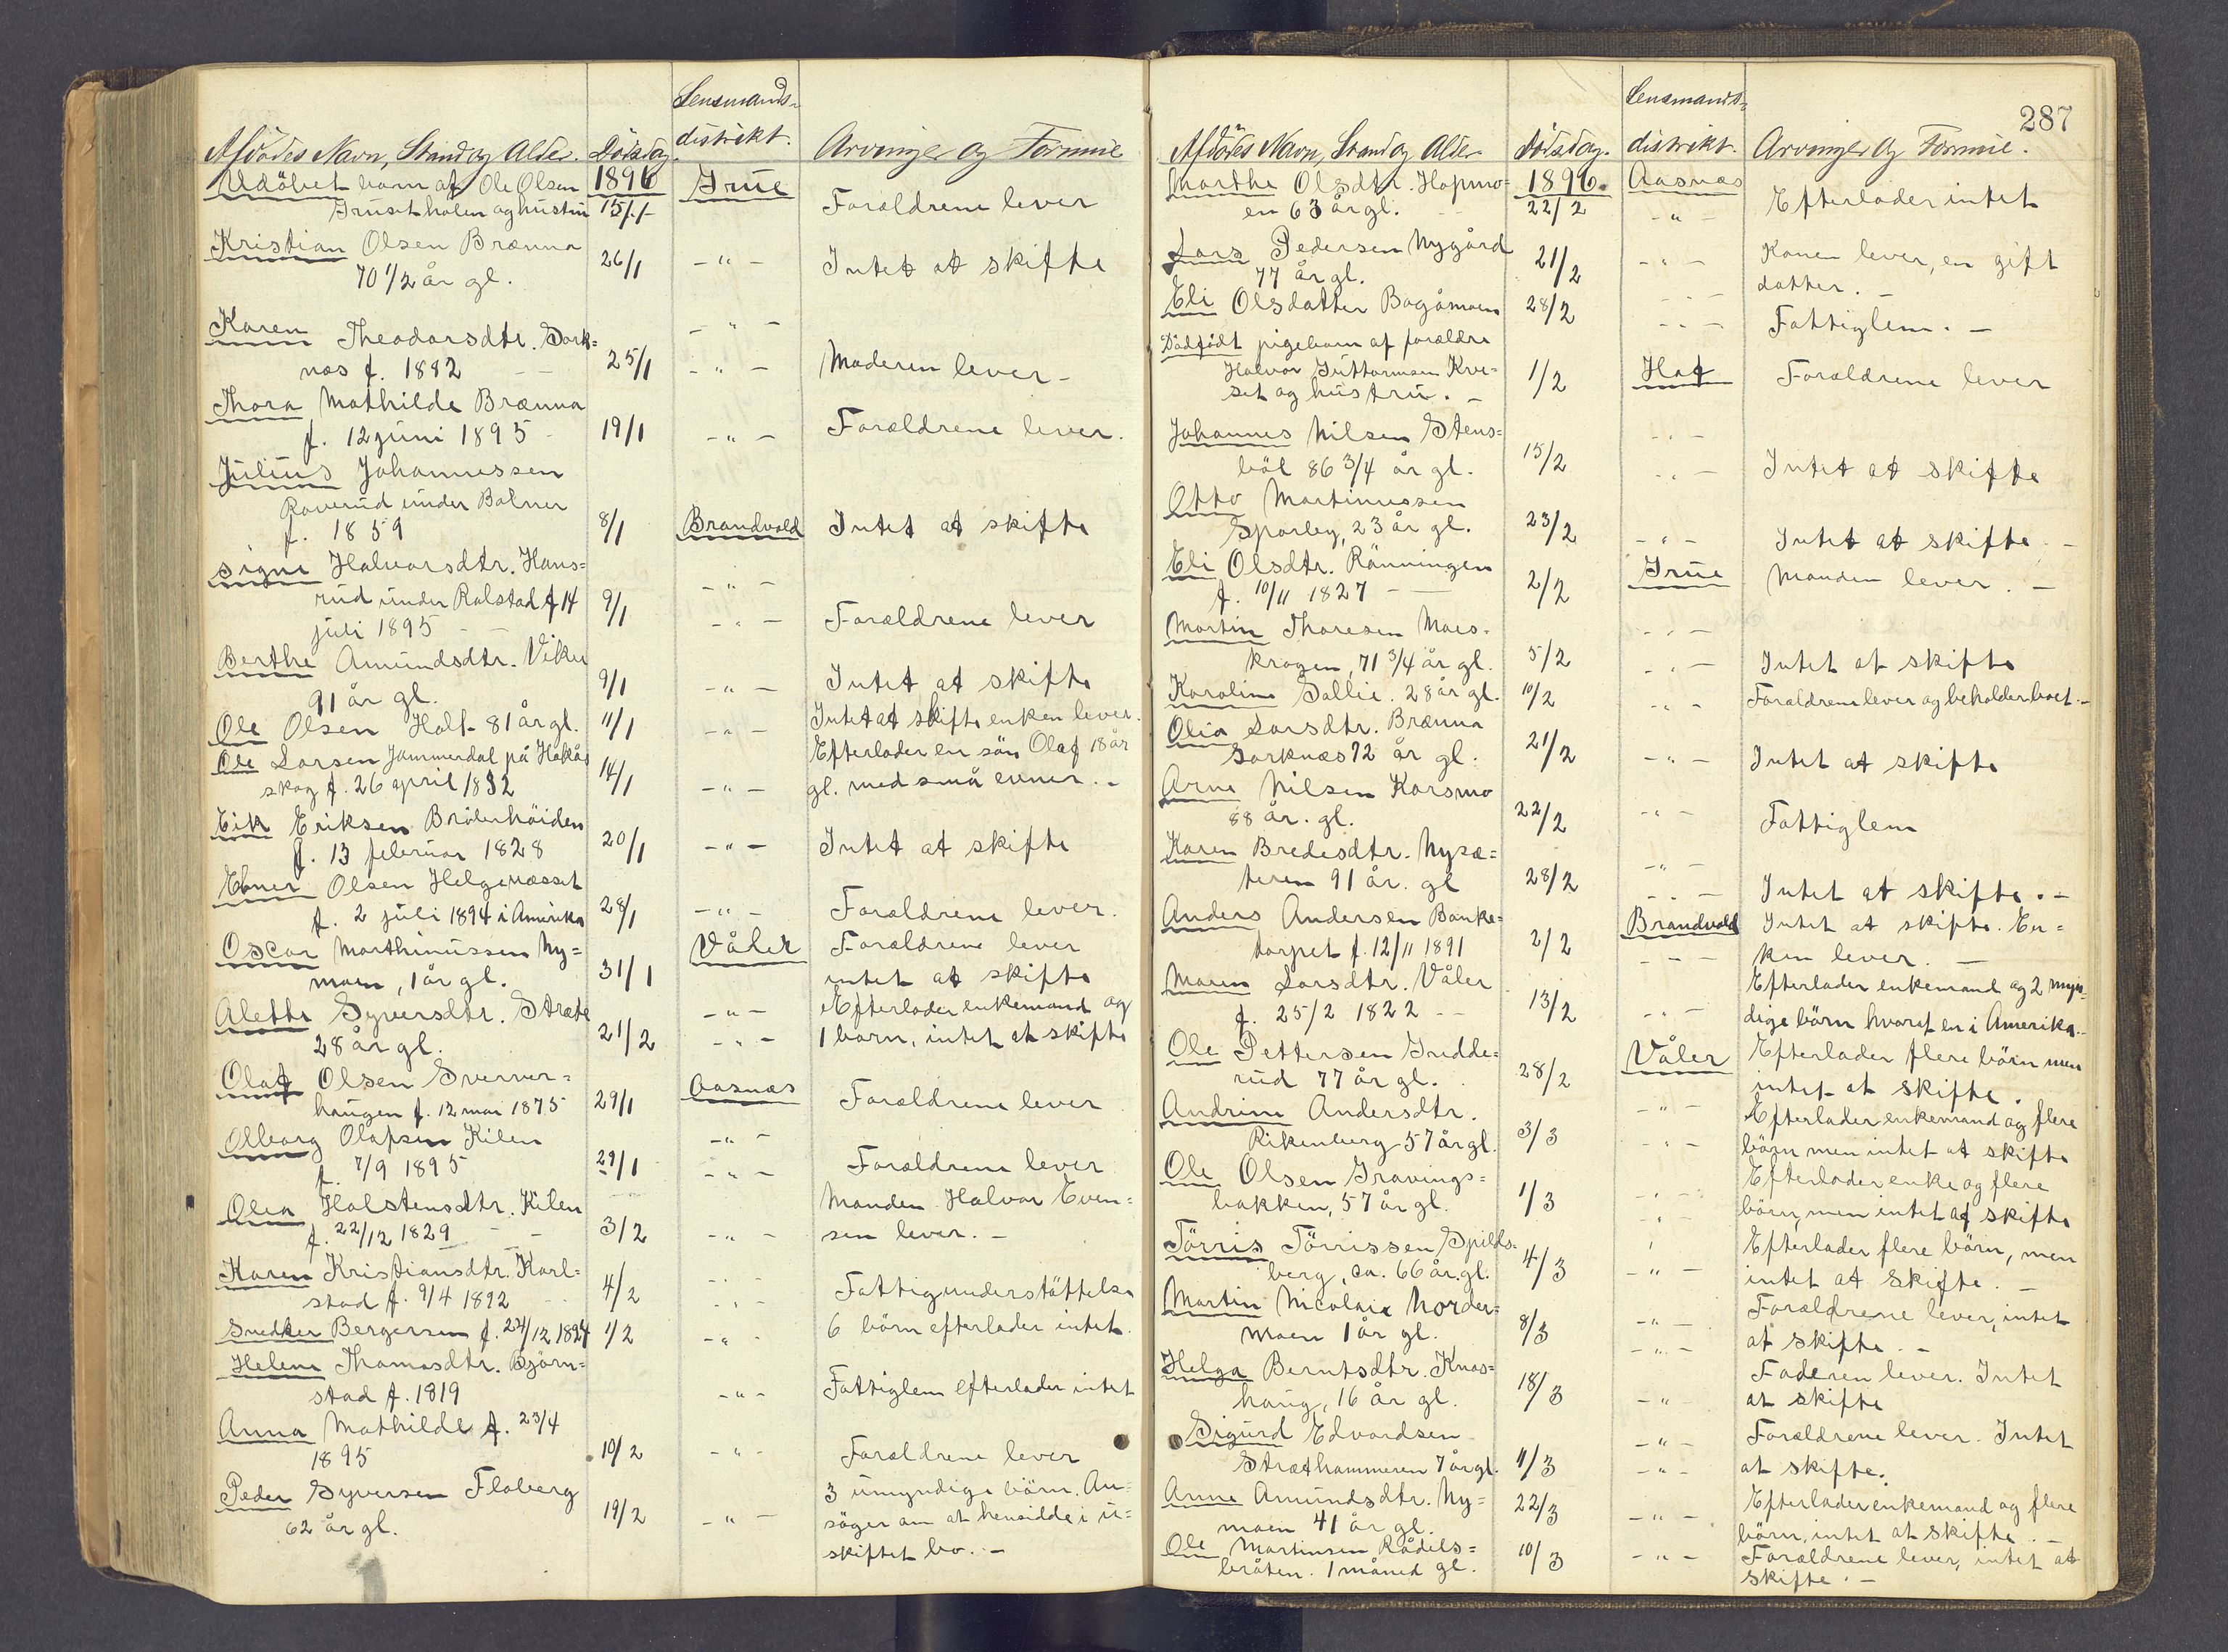 Lensmands-
Afdödes Navn, Stand og Alder. Dödsdag. distrikt. Arvinger og Formue
Udöbet barn af Ole Olsen 1896 Grue
Gruset holen og hustru 15/1 Forældrene lever
Kristian Olsen Brænna
70 1/2 år gl. 26/1 -"- Intet at skifte
Karen Theodorsdtr. Sork=
næs f. 1882 25/1 -"- Moderen lever -
Thora Mathilde Brænna
f. 12 juni 1895 19/1 -"- Forældrene lever.
Julius Johannessen
Roverud under Bolner
f. 1859 8/1 Brandvold Intet at skifte
Signe Halvorsdtr. Hans=
rud under Rolstad f 14 9/1 -"-
juli 1895 Forældrene lever
Berthe Amundsdtr. Viker
91 år gl. 9/1 -"- Intet at skifte
Ole Olsen Holt 81 år gl. 11/1 -"- Intet at skifte enken lever.
Ole Larsen Jammerdal på Håkås Efterlader en sön Olaf 18 år
skog f. 26 april 1832 14/1 -"- gl. med små evner. -
Eik Eriksen Brölerhöiden
f. 13 februar 1828 20/1 -"- Intet at skifte
Ebner Olsen Helgenæsset
f. 2 juli 1894 i Amerika 28/1 -"- Forældrene lever.
Oscar Marthinussen Ny= Våler Forældrene lever
moen, 1 år gl. 31/1 intet at skifte
Alette Syversdtr. Stræte -"- Efterlader enkemand og
28 år gl. 21/2 -"- 1 barn, intet at skifte
Olaf Olsen Sverver=
haugen f. 12 mai 1875 29/1 Aasnæs Forældrene lever
Olborg Olafsen Kilen -"-
f. 7/9 1895 29/1 -"- Forældrene lever
Olea Halstensdtr. Kilen Manden Halvor Even=
f. 22/12 1829 3/2 -"- sen lever. -
Karen Kristiansdtr. Karl=
stad f. 9/4 1892 4/2 -"- Fattigunderstöttelse
Snedker Bergersen f. 24/12 1824 1/2 -"- 6 börn efterlader intet.
Helene Thomasdtr. Björn=
stad f. 1819 -"- Fattiglem efterlader intet
Anna Mathilde f. 23/4
1895 10/2 -"- Forældrene lever
Peder Syversen Floberg 3 umyndige börn. An=
62 år gl. 19/2 -"- söger om at hensidde i u=
skiftet bo. -
287
Lensmands=
Afdödes Navn, Stand og Alder Dödsdag. distrikt. Arvinger og Formue.
Marthe Olsdtr. Hopmo= 1896. Aasnæs
en 63 år gl. 22/2 -"- Efterlader intet
Lars Pedersen Nygård Konen lever, en gift
77 år gl. 21/2 -"- datter. -
Eli Olsdatter Bogåmoen 28/2 -"- Fattiglem. -
Dödfödt pigebarn af forældre
Halvor Guttormsen Kve= 1/2 Hof Forældrene lever
set og hustru. -
Johannes Nilsen Stens=
böl 86 3/4 år gl. 15/2 -"- Intet at skifte
Otto Martinussen
Sparby, 23 år gl. 23/2 -"- Intet at skifte -
Eli Olsdtr. Rönningen
f. 10/11 1827 - 2/2 Grue Manden lever. -
Martin Thoresen Moes=
krogen, 71 3/4 år gl. 5/2 -"- Intet at skifte
Karoline Sollie. 28 år gl. 10/2 -"- Forældrene lever og beholder boet. -
Olia Larsdtr. Brænna
Sorknæs 72 år gl. 21/2 -"- Intet at skifte
Arne Nilsen Korsmo
88 år. gl. 22/2 -"- Fattiglem
Karen Bredesdtr. Nysæ=
teren 91 år. gl 28/2 -"- Intet at skifte. -
Anders Andersen Banke= Brandvold Intet at skifte. En=
torpet f. 12/11 1891 2/2 ken lever. -
Maren Larsdtr. Våler Efterlader enkemand og 2 myn=
f. 25/2 1822 - 13/2 -"- dige börn hvoraf en i Amerika. -
Ole Pettersen Gredde= Våler Efterlader flere börn men
rud 77 år gl. 28/2 intet at skifte.
Andrine Andersdtr. -"- Efterlader enkemand og flere
Rikenberg 57 år gl. 3/3 -"- börn men intet at skifte
Ole Olsen Gravings= Efterlader enke og flere
bakken, 57 år gl. 1/3 -"- börn, men intet at skifte
Törris Törrissen Spilds= Efterlader flere börn, men
berg, ca. 66 år. gl. 4/3 -"- intet at skifte. -
Martin Nicolai Norder= Forældrene lever, intet
moen 1 år gl. 8/3 -"- at skifte. -
Helga Berntsdtr. Knas= Faderen lever. Intet
haug, 16 år gl. 18/3 -"- at skifte
Sigurd Edvardsen -"- Forældrene lever. Intet
Stræthammeren 7 år gl. 11/3 -"- at skifte.
Anne Amundsdtr. Ny= Efterlader enkemand og flere
moen 41 år gl. 22/3 -"- börn, intet at skifte. -
Ole Martinsen Rådels= Forældrene lever, intet at
bråten. 1 måned gl. 10/3 -"- skifte. -